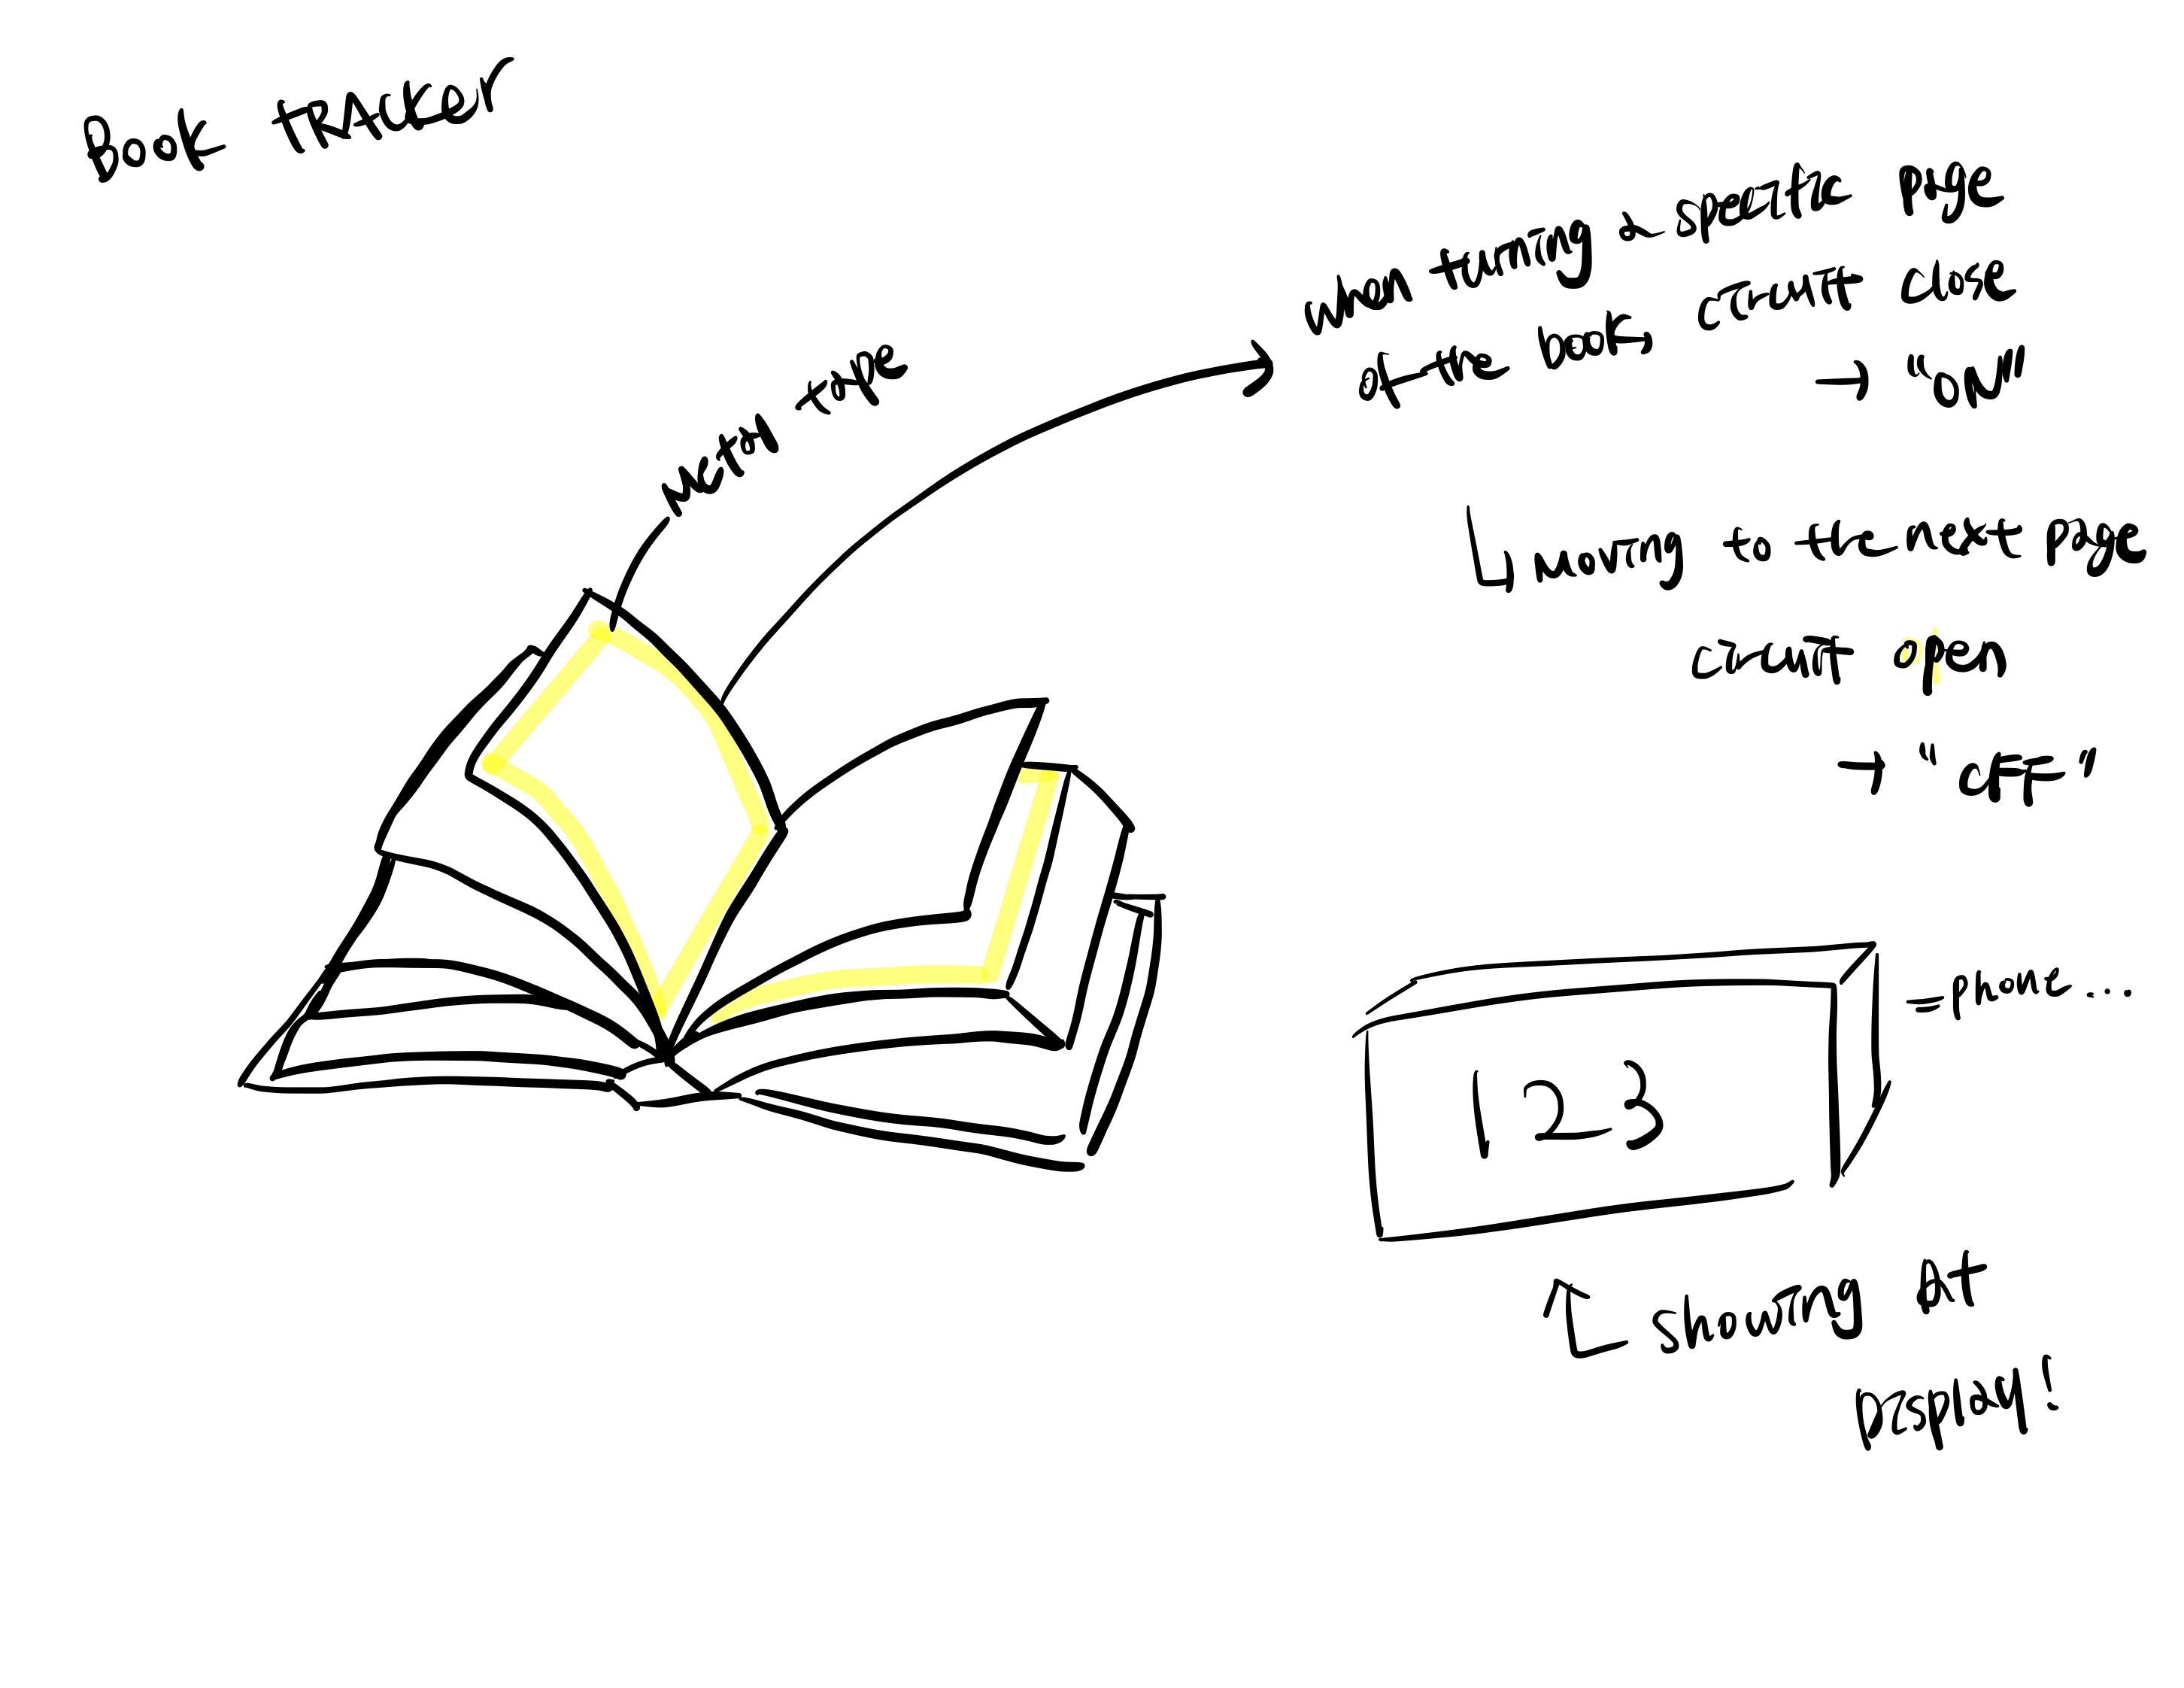 Book TRACKer
Metal tape
when turning a specific page
of the book circuit close
→ "ON"
moving to the next page
circuit open
→ "OFF"
= phone...
123
showing At
Display!